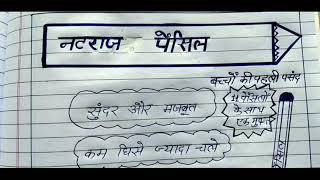 नटराज पेंसिल
बच्चों की पहली पसंद
सुंदर और मजबूत
11 पेंसिलों
के साथ
एक मुफ्त
कम घिसे ज्यादा चले